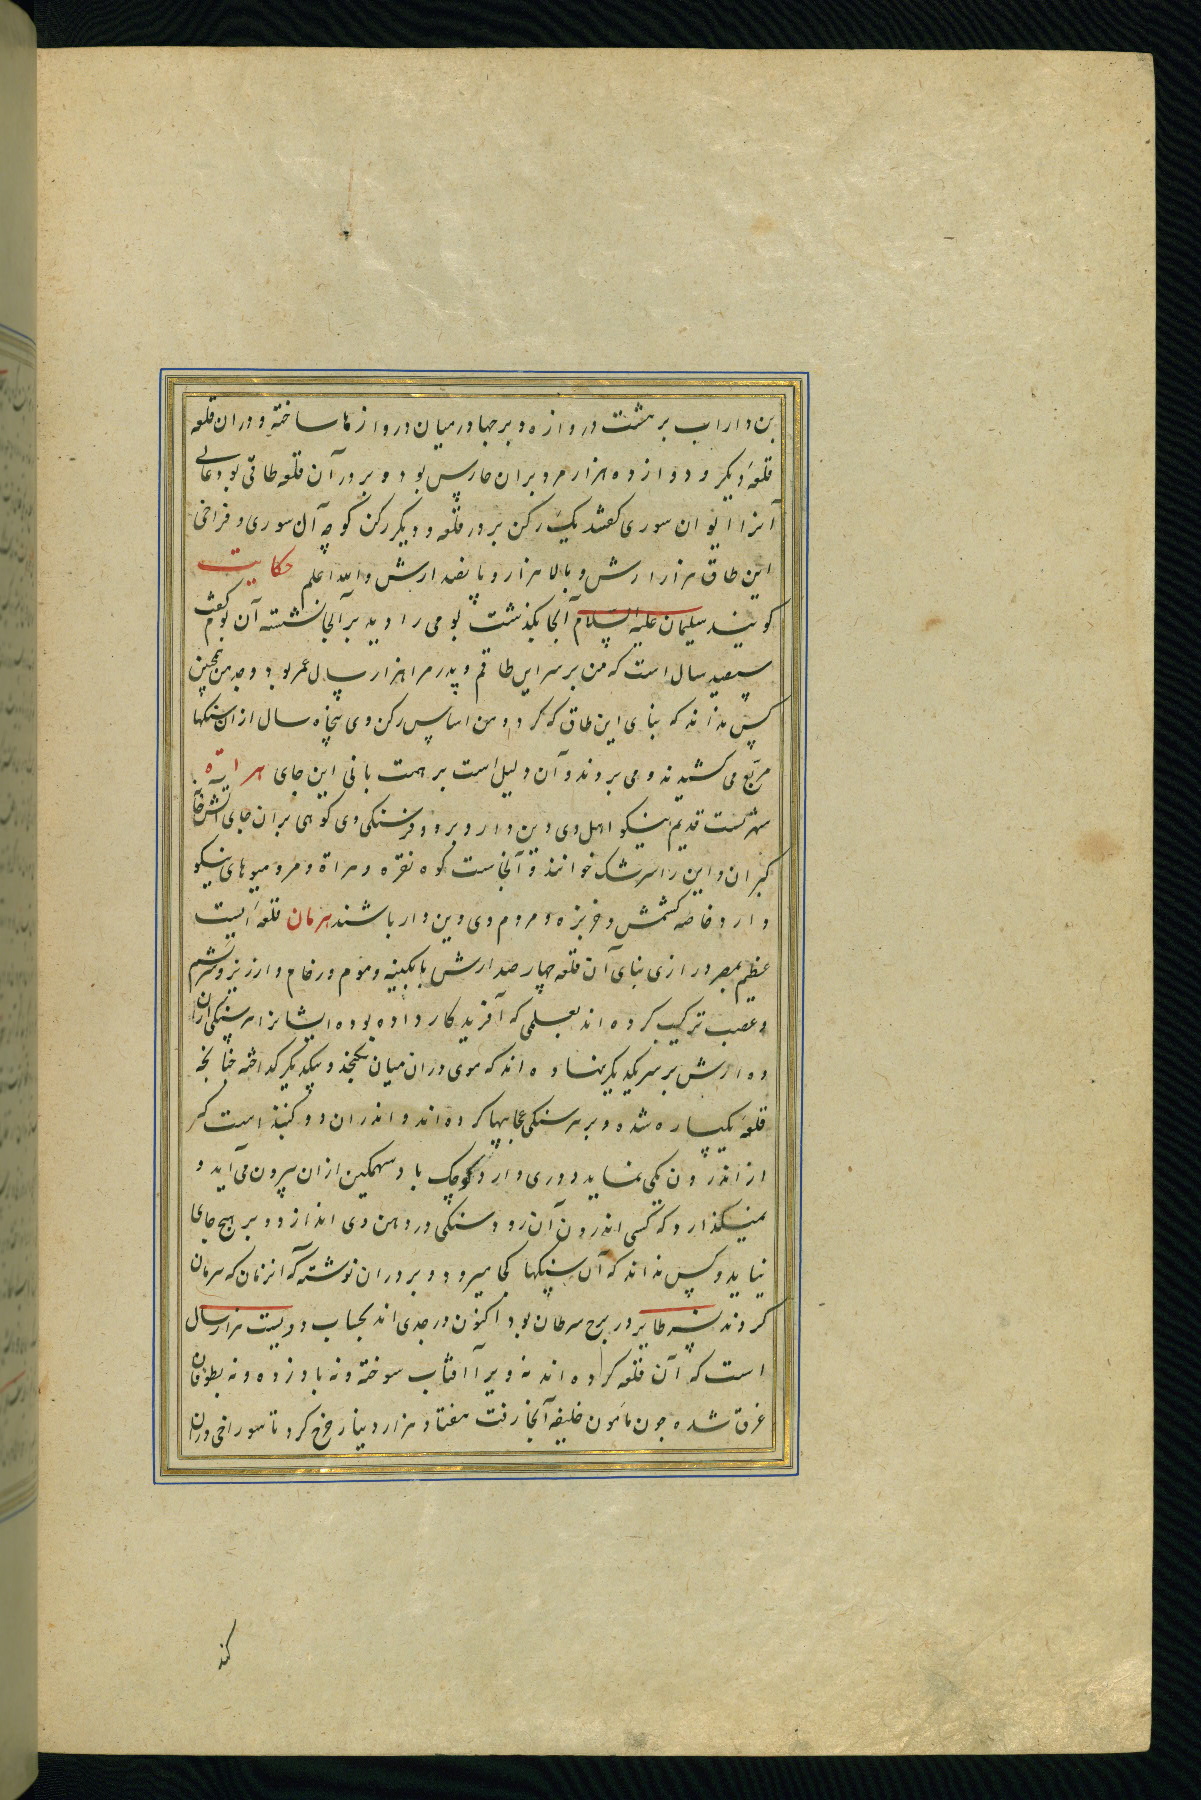 بن داراب بر هشت دروازه و برجها در میان دروازها ساخته و در ان قلعه
قلعهٔ دیکر و دوازده هزار مرد بران حارس بود و بر در آن قلعه طاقی بود عالی
آنرا ایوان سوری کفتند یک رکن بر در قلعه و دیکر رکن کوچه آن سوری و فراخی
این طاق هزار ارش و بالا هزار و پانصد ارش والله اعلم حکایت
کویند سلیمان علیه السلام آنجا بکذشت بومی را دید بر آنجا نشسته آن بوم کفت
سیصد سال است که من بر سر این طاقم و پدر مرا هزار سال عمر بود و جد من همچنین
کس نداند که بنای این طاق که کرد و من اساس رکن وی پنجاه سال از ان سنکها
مربّع می کشیدند و می بردند و آن دلیل است بر همت بانی این جای هراة
شهریست قدیم نیکو اهل وی دین دار و بر دو فرسنکی وی کوهی بران جای آتش خانهٔ
کبران و این را سرشک خوانند و آنجاست کوه نقره و هراة و مرو میوهای نیکو
دارد خاصه کشمش و خربزه و مردم وی دین دار باشند هرمان قلعهٔ ایست
عظیم بمصر درازی بنای آن قلعه چهار صد ارش بابکینه و موم و رخام و ارزیز و سریشم
و عصب ترکیب کرده اند بعلمی که آفریدکار داده بوده ایشانرا هر سنکی ازان
ده ارش بر سر یکدیکر نهاده اند که موی در ان میان نکنجد و بیکدیکر کداخته چنانکه
قلعه یکپاره شده و بر هر سنکی عجایبها کرده اند و اندران دو کنبذ است کر
از اندرون یکی نماید و دری دارد کوچک باد سهمکین ازان بیرون می آید و
نمیکذارد که کسی اندرون آن رود و سنکی در دهن وی اندازد و بر هیچ جای
نیاید و کس نداند که آن سنکها کجا میرود و بر در ان نوشته که آنزمان که هرمان
کردند نسر طایر در برج سرطان بود اکنون در جدی اند بحساب دویست هزار سال
است که آن قلعه کرده اند نه ویرا آفتاب سوخته و نه باد زده و نه بطوفان
غرق شده چون مامون خلیفه آنجا رفت هفتاد هزار دینار خرج کرد تا سوراخی دران
کند